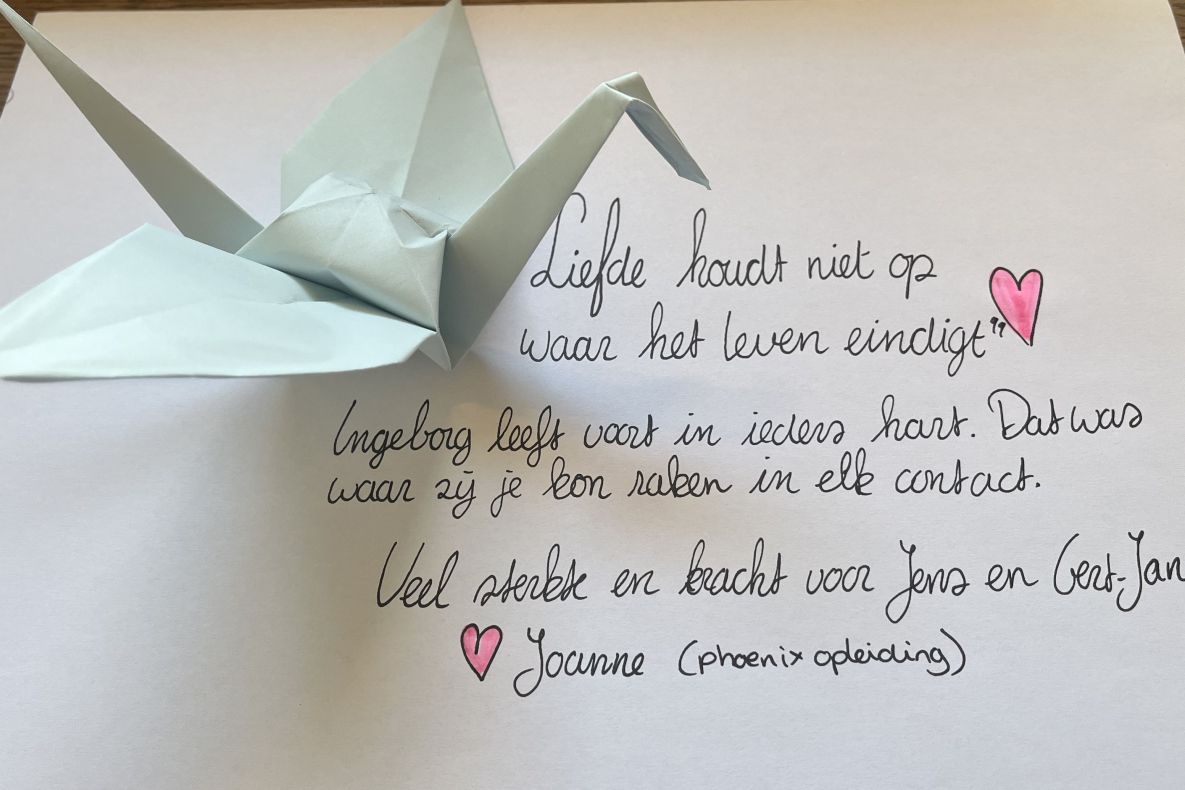 Liefde houdt niet op
waar het leven eindigt"
Ingeborg leeft voort in ieders hart. Dat was
waar zij je kon raken in elk contact.
Veel sterkte en kracht voor Jens en Gert-Jan
Joanne (phoenix opleiding)